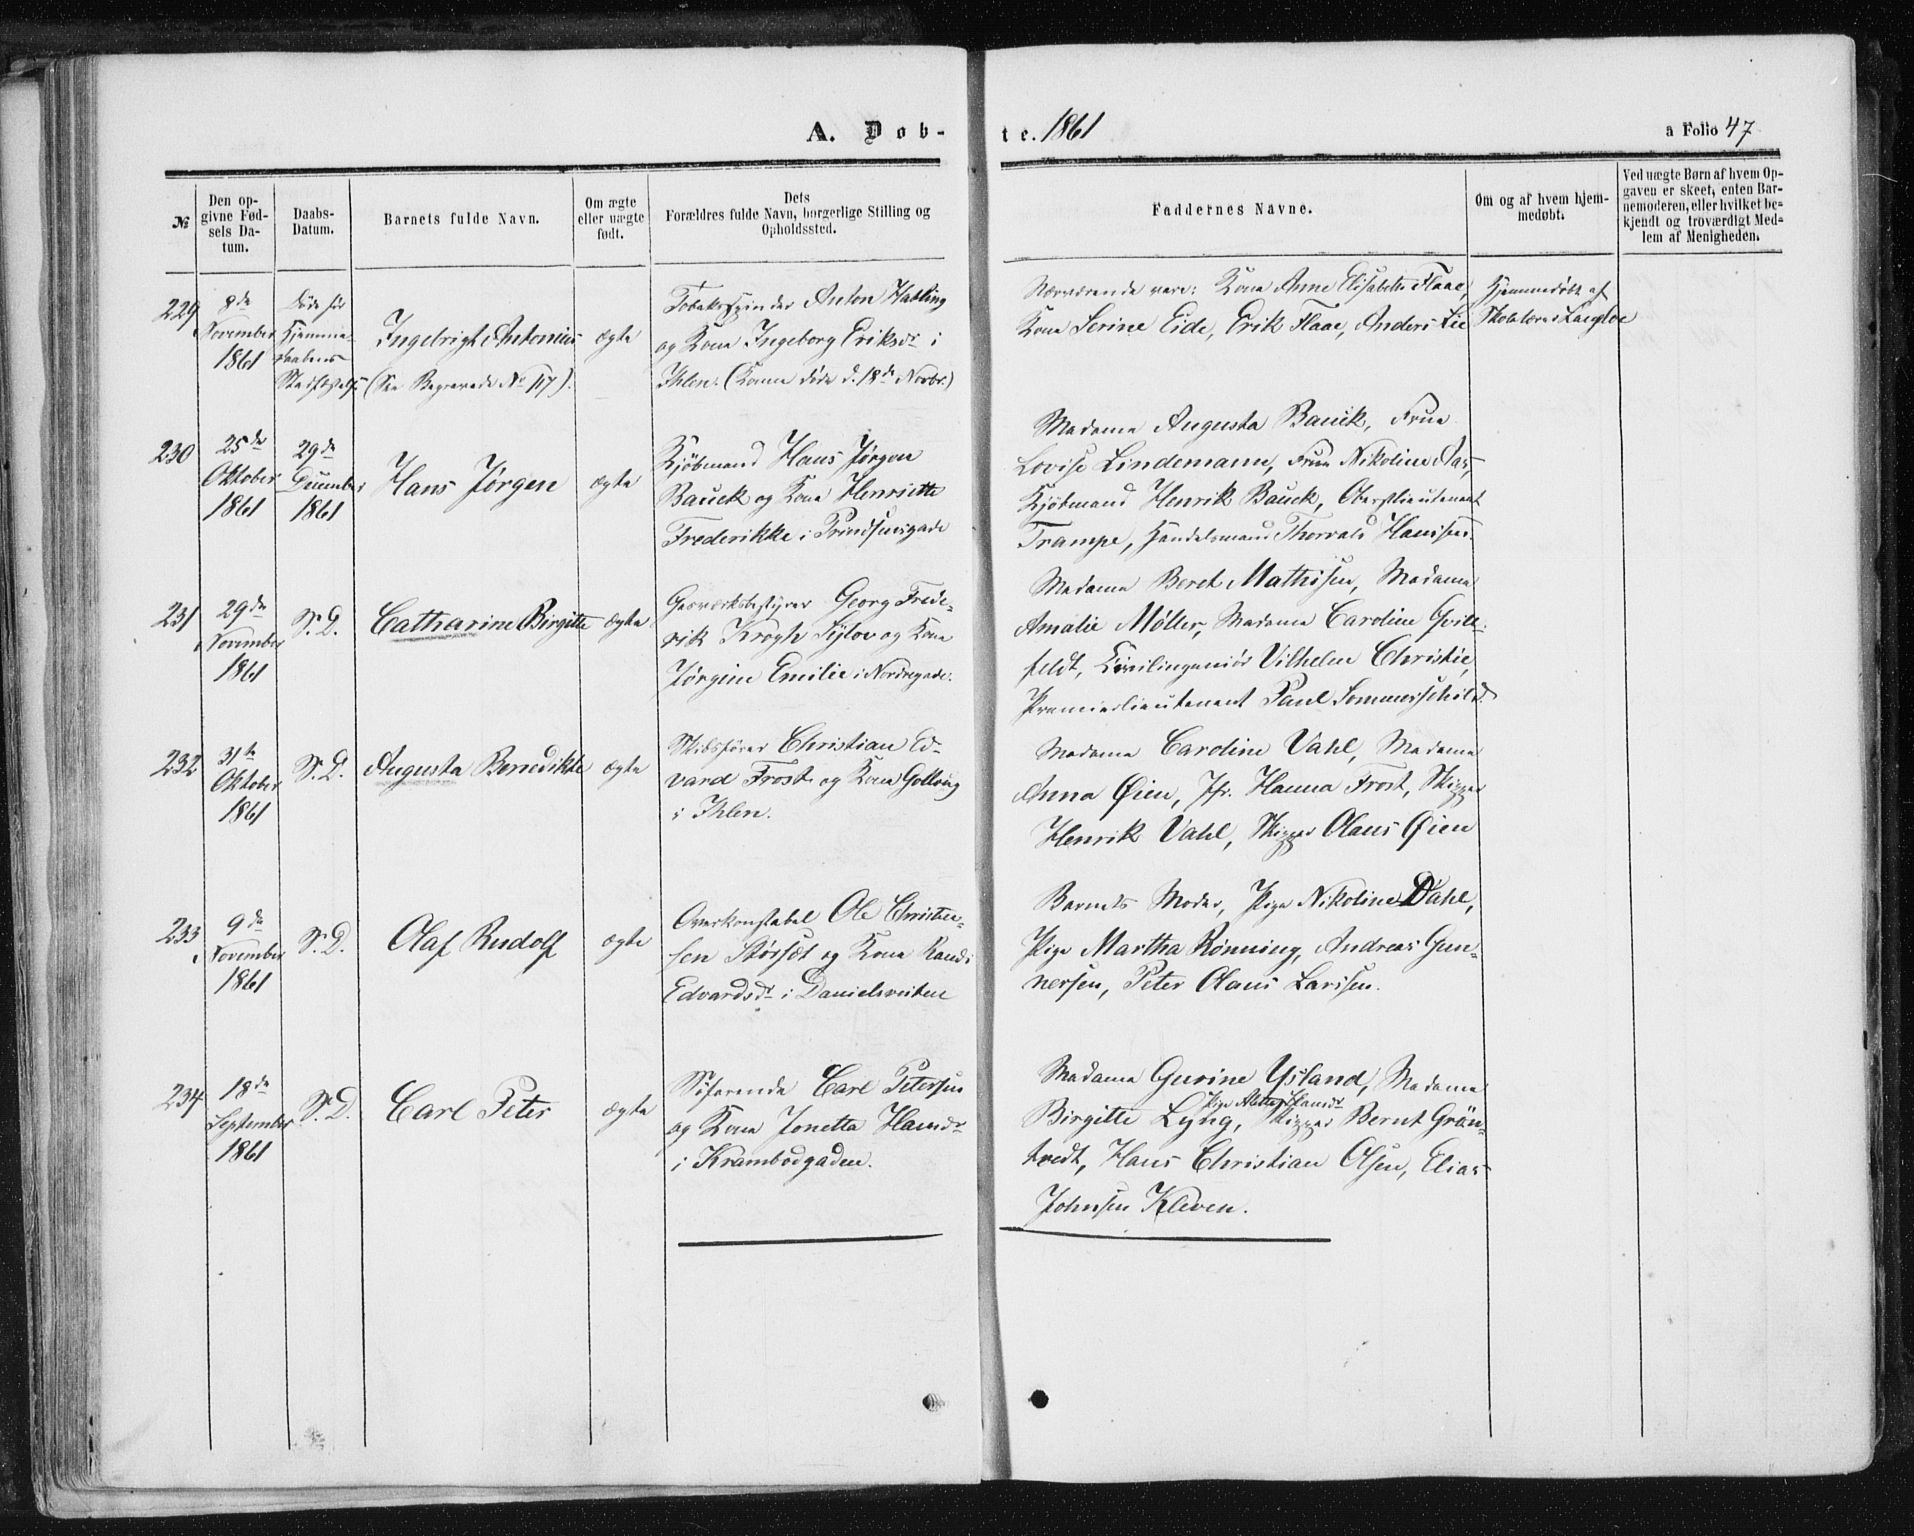 A. Døb-
te. 1861
a Folio 47
№
Den op-
givne Fød-
sels Da-
tum.
Daabs-
Datum.
Barnets fulde Navn.
Om ægte
eller uægte
født.
Dets
Forældres fulde Navn, borgerlige Stilling og
Opholdssted.
Faddernes Navne.
Om og af hvem hjem-
medøbt.
Ved uægte Børn af hvem Op-
gaven er skeet, enten Bar-
nemoderen, eller hvilket be-
kjendt og troværdigt Med-
lem af Menigheden.
229
8de
November
1861
Døde før
Hjemme-
daabens
Stadfæstelse
Ingebrigt Antonius
(See Begravede No 117).
ægte
Tobaksspinder Anton Habling
og Kone Ingeborg Eriksdr i
Ihlen. (Konen døde d. 18de Novbr.)
Nærværende vare: Kone Anne Elisabeth Flaae,
Kone Serine Eide, Erik Flaae, Anders Lie
Hjemmedøbt af
Skolelærer Langloe
230
25de
Oktober
1861
29de
December
1861
Hans Jørgen
ægte
Kjøbmand Hans Jørgen
Bauck og Kone Henriette
Frederikke i Prindsensgade
Madame Augusta Bauck, Frue
Lovise Lindemann, Frue Nikoline Aas,
Kjøbmand Henrik Bauck, Oberstlieutenant
Trampe, Handelsmand Thorvald Hansen.
231
29de
November
1861
S. D.
Catharine Birgitte
ægte
Gasværksbestyrer Georg Frede-
rik Krogh Sylov og Kone
Jørgine Emilie i Nordregade.
Madame Beret Mathisen, Madame
Amalie Møller, Madame Caroline Hvit-
feldt, Civilingeniør Vilhelm Christie,
Premierlieutenant Paul Sommerschild.
232
31te
Oktober
1861
S. D.
Augusta Benedikte
ægte
Skibsfører Christian Ed-
vard Frost og Kone Gollaug
i Ihlen.
Madame Caroline Vahl, Madame
Anna Øien, Jfr. Hanna Frost, Skipper
Henrik Vahl, Skipper Olaus Øien
233
9de
November
1861
S. D.
Olaf Rudolf
ægte
Overkonstabel Ole Christen-
sen Størset og Kone Randi
Edvardsdr i Danielsveiten
Barnets Moder, Pige Nikoline Dahl,
Pige Martha Rønning, Andreas Gun-
nersen, Peter Olaus Larsen.
234
18de
September
1861
S. D.
Carl Peter
ægte
Søfarende Carl Petersen
og Kone Jonetta Hansdr
i Krambodgaden.
Madame Gurine Ysland, Madame
Pige Hansdr
Birgitte Lyng, Skipper Bernt Grøn-
tvedt, Hans Christian Olsen, Elias
Johnsen Kleven.